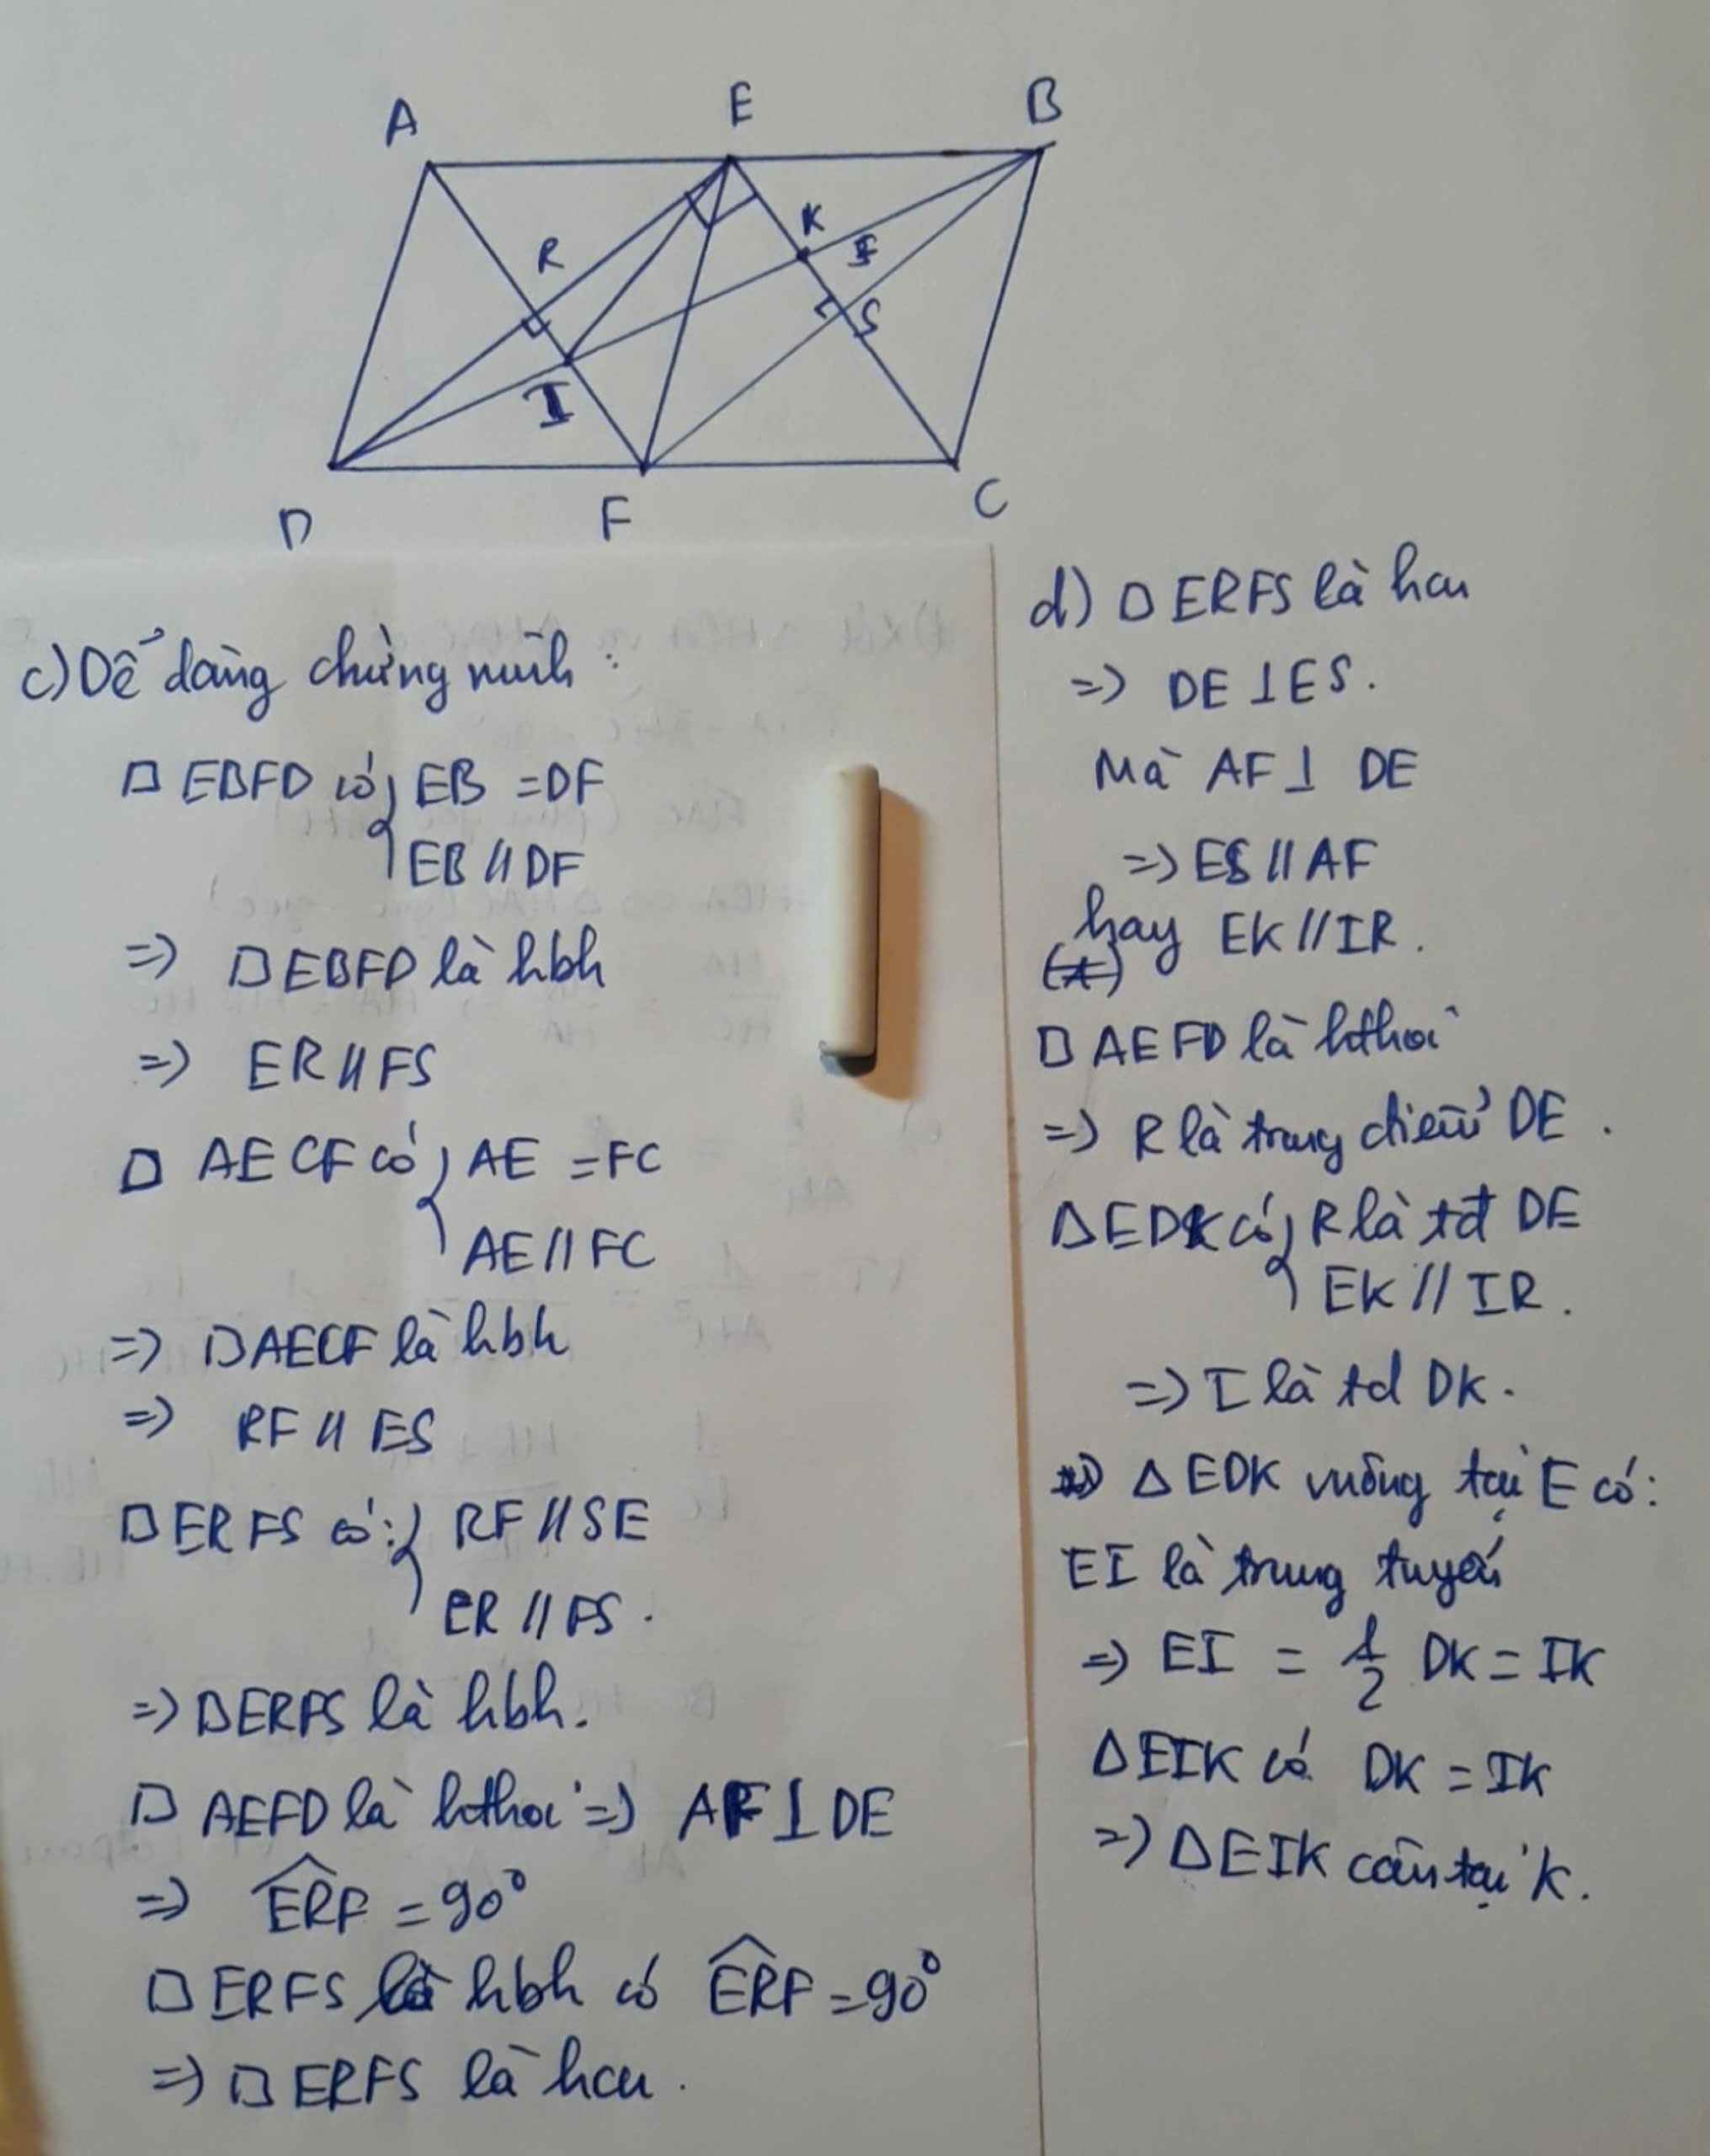 A E B
R K
S
I
D F C
c) Dễ dàng chứng minh :
□ EBFD có { EB = DF
EB // DF
=> □ EBFD là hbh
=> ER // FS
□ AECF có { AE = FC
AE // FC
=> □ AECF là hbh
=> RF // ES
□ ERFS có: { RF // SE
ER // FS .
=> □ ERFS là hbh.
□ AEFD là hthoi => AF ⊥ DE
=> ERF = 90°
□ ERFS là hbh có ERF = 90°
=> □ ERFS là hcn .
d) □ ERFS là hcn
=> DE ⊥ ES .
Mà AF ⊥ DE
=> ES // AF
hay EK // IR .
(*)
□ AEFD là hthoi
=> R là trung điểm DE .
Δ EDK có { R là tđ DE
EK // IR .
=> I là td DK .
Δ EDK vuông tại E có :
EI là trung tuyến
=> EI = 1/2 DK = IK
Δ EIK có DK = IK
=> Δ EIK cân tại K .